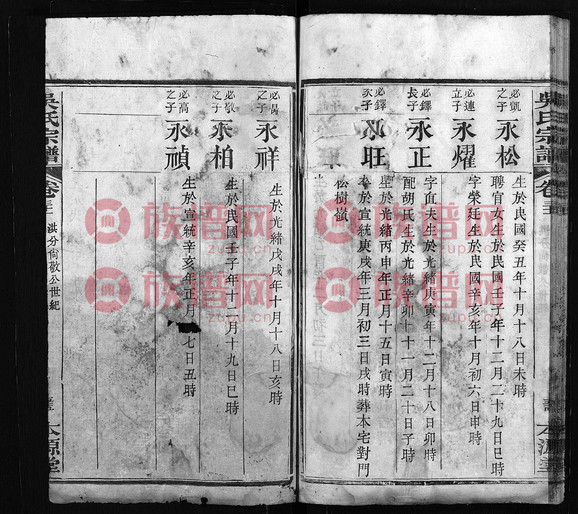 吳氏宗譜
卷三
必凱之子
永松
生於民國癸丑年十月十八日未時
聘官女生於民國壬子年十二月二十九日巳時
必連立子
永耀
字榮廷生於民國辛亥年十月初六日申時
必鐸長子
永正
字直夫生於光緒庚寅年十二月十八日卯時
配胡氏生於光緒辛卯十一月二十日子時
必鐸次子
永旺
生於光緒年正月十五日寅時
歿於宣統庚戌年三月初三日戌時葬本宅對門
松樹嶺
必昌之子
永祥
生於光緒戊戌年十月十八日亥時
必敬之子
永柏
生於民國壬子年十月十九日巳時
必高之子
永禎
生於宣統辛亥年正月七日丑時
吳氏宗譜
卷三
洪分尙敬公世紀
本源堂
族谱网
zupu.cn